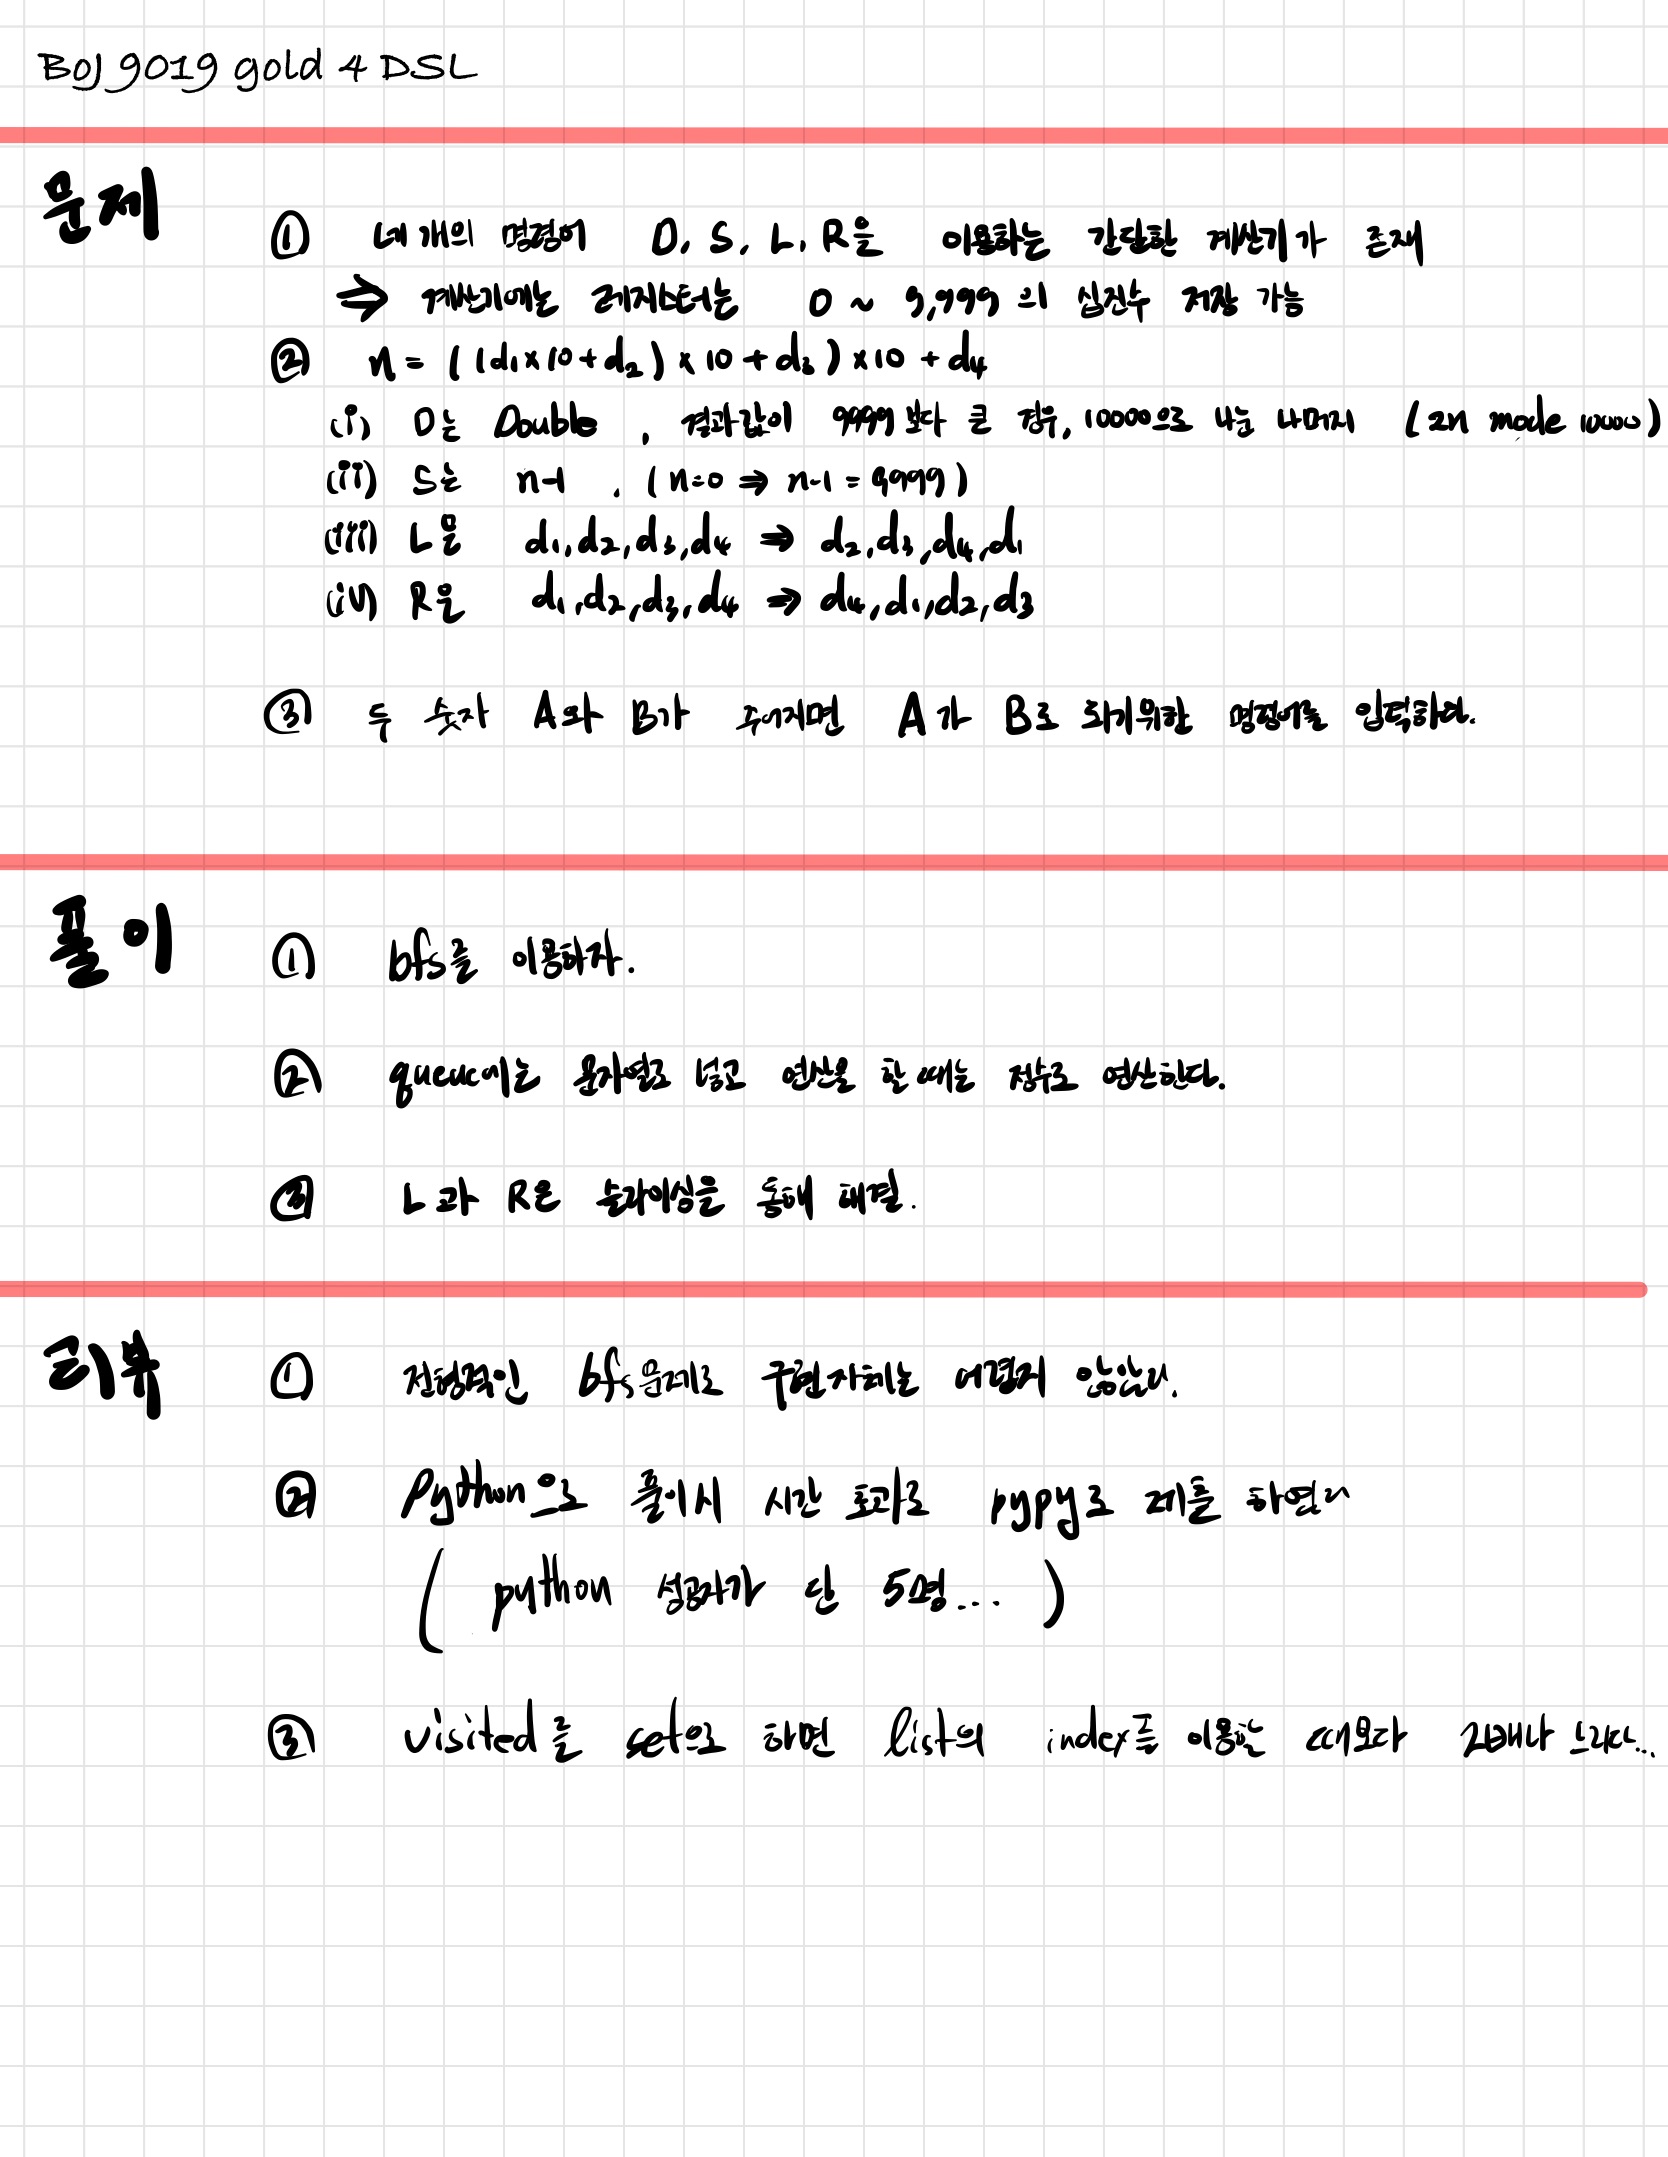 BOJ 9019 gold 4 DSL
문제
① 네 개의 명령어 D, S, L, R을 이용하는 간단한 계산기가 존재
⇒ 계산기에는 레지스터는 0 ~ 9,999 의 십진수 저장 가능
② n = ((d1×10+d2)×10+d3)×10+d4
(i) D는 Double, 결과값이 9999 보다 큰 경우, 10000으로 나눈 나머지 (2n mode 10000)
(ii) S는 n-1. (n=0 ⇒ n-1 = 9999)
(iii) L은 d1,d2,d3,d4 ⇒ d2,d3,d4,d1
(iv) R은 d1,d2,d3,d4 ⇒ d4,d1,d2,d3
③ 두 숫자 A와 B가 주어지면 A가 B로 되기위한 명령어를 입력하라.
풀이
① bfs를 이용하자.
② queue에는 문자열로 넣고 연산을 할 때는 정수로 연산한다.
③ L과 R은 슬라이싱을 통해 해결.
리뷰
① 전형적인 bfs문제로 구현자체는 어렵지 않았다.
② Python으로 풀이시 시간 초과로 pypy로 제출 하였다
( python 성공자가 단 5명... )
③ visited를 set으로 하면 list의 index를 이용할 때보다 2배나 느리다...